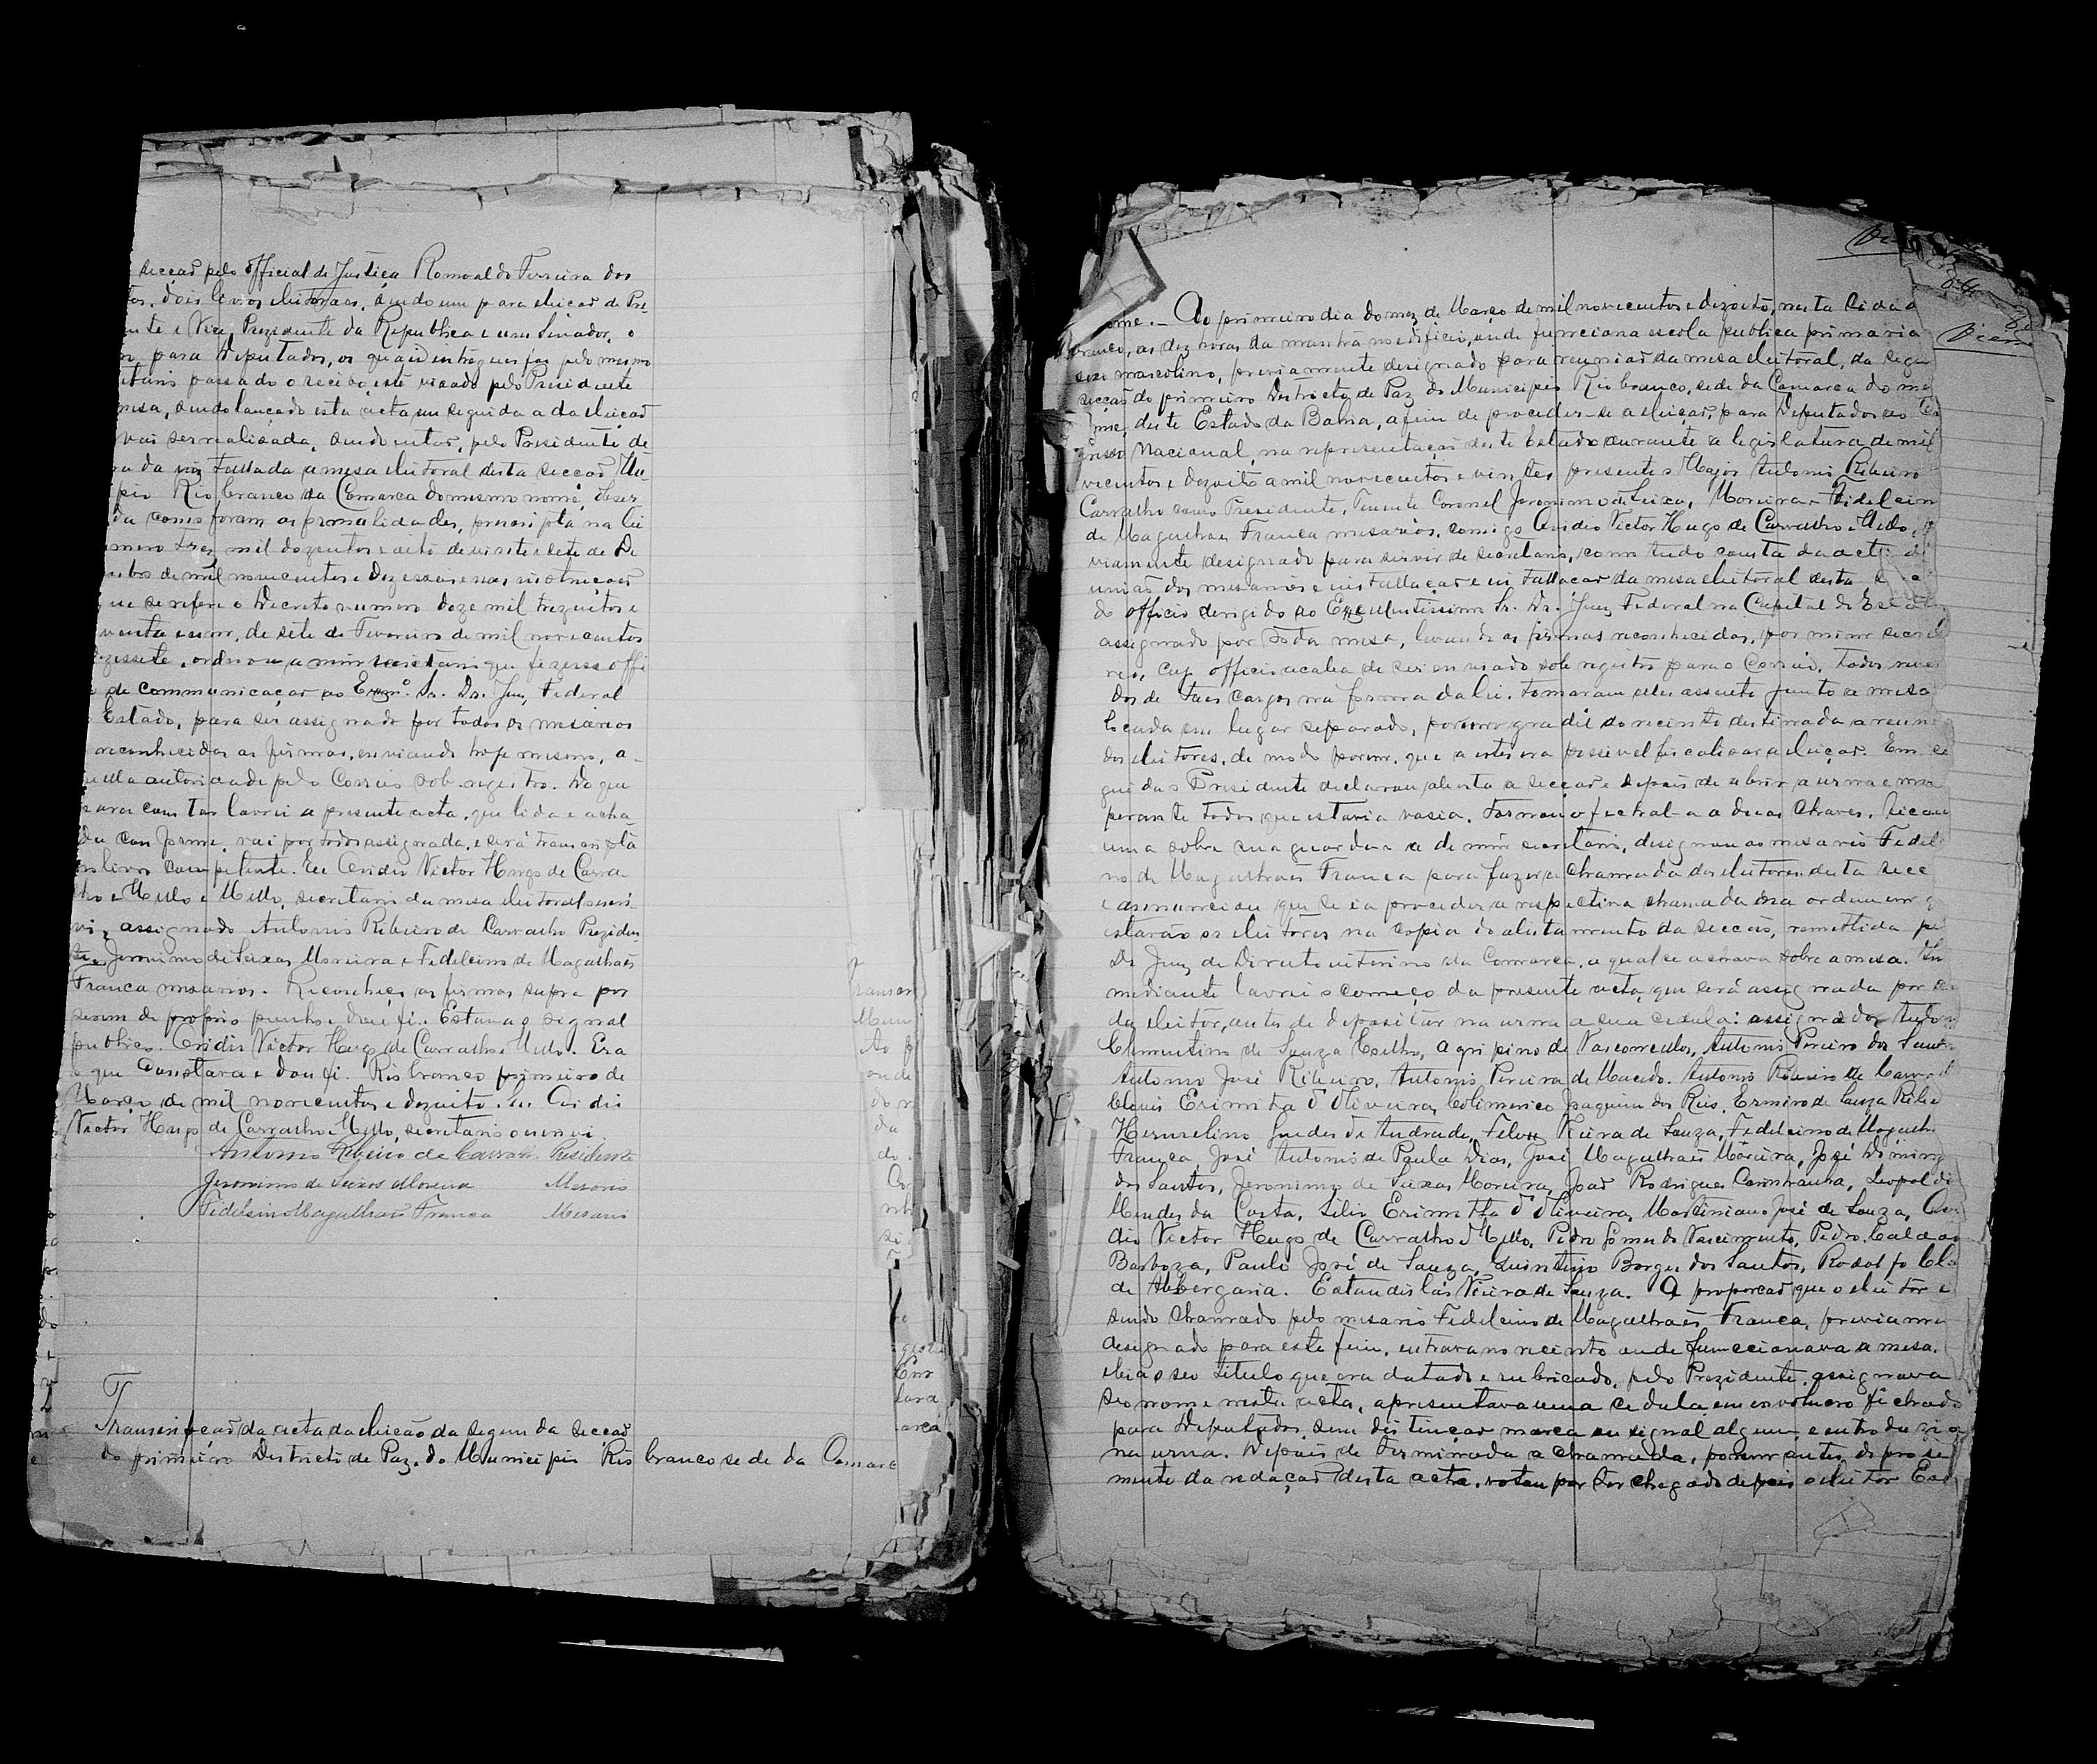 secção pelo official de Justiça Romoaldo Ferreira dos
tos, dois livros eleitoraes, sendo um para eleicaõ de Pre-
nte e Vice Prezidente da Republica e um Sinador, o
para Deputados, os quais entregues foi pelo mesmo
etario passado o recibo este visado pelo Prezidente
mesa, sendo lancado esta acta em seguida a da eleicaõ
vai ser realisada, sendo entaõ, pelo Presidente de
rada voz installada a mesa eleitoral desta seccaõ Mu-
pio Rio branco da Comarca do mesmo nome, obser
da como foram as formalidades, prescripta na lei
mero trez mil dozentos e oito de vinte e sete de De
mbro de mil novecentos e dezesseis e nas instruccões
ue se refere o Decreto numero doze mil trezentos e
venta e um, de sete de Fevereiro de mil novecentos
zessete, ordenou a mim secretario que fizesse offi
de communicaçaõ ao Exmº. Sr. Dr. Juiz Federal
Estado, para ser assignado por todos os mesarios
reconhecidas as firmas, enviando hoje mesmo, a-
quella autoridade pelo Correio sob registro. Do que
para constar lavrei a presente acta, que lida e acha-
da conforme, vai por todos assignada, e será transcripta
no livro competente. Eu Ovidio Victor Hugo de Carva-
lho e Mello e Mello, secretario da mesa eleitoral escre-
vi, assignado Antonio Ribeiro de Carvalho Preziden-
te, Jeronimo de Seixas Moreira e Fidelcino de Magalhaẽs
Franca mesarios. Reconheço as firmas supra por
serem de proprio punho e dou fé. Estava o signal
publico. Ovidio Victor Hugo de Carvalho e Mello. Era
o que constava e dou fé. Rio branco primeiro de
Março de mil novecentos e dezoito. Eu Ovidio
Victor Hugo de Carvalho e Mello, secretario o escrevi
Antonio Ribeiro de Carvalho Presidente
Jeronimo de Seixas Moreira Mesario
Fidelsino Magalhaes Franca Mesario
Transcripçaõ da acta da eleicão da segunda seccaõ
do primeiro Districto de Paz do Municipio Rio branco sede da Comarc
ome. - Ao primeiro dia do mez de Março de mil novecentos e dezoito, nesta Cidad
branco, as dez horas da manhã no edificio, onde funcciona escola publica primaria
sexo masculino, previamente designado para reuniaõ da mesa eleitoral, da segun
seccaõ do primeiro Districto de Paz do Municipio Rio branco, sede da Comarca do me
me, deste Estado da Bahia, afim de proceder-se a eleicaõ, para Deputados ao Co
gresso Nacional, na representaçaõ deste Estado durante a legislatura de mil
vecentos e dezoito a mil novecentos e vinte, presentes Major Antonio Ribeiro
Carvalho como Presidente, Tenente Coronel Jeronimo de Seixas, Moreira e Fidelcin
de Magalhaes Franca mesarios, comigo Ovidio Victor Hugo de Carvalho e Mello,
viamente designado para servir de secretario, como tudo consta da acta d
uniaõ dos mesarios e installaçaõ e installacaõ da mesa eleitoral desta
do officio dirigido ao Excellentissimo Sr. Dr. Juiz Federal na Capital do Estado
assignado por toda mesa, levando as firmas reconhecidas, por mim secret
rio, cujo officio acaba de ser enviado sob registro para o Correio, todos
dos de taes cargos na forma da lei. Tomaram elles assento junto a mesa
locada em lugar separado, por um gradil do recinto destinada a reuni
dos eleitores, de modo porem, que a estes era possivel fiscalisar a eleiçaõ. Em se
guida o Presidente declarou aberta a secçaõ e depois de abrir a urna e mo
perante todos que estava vasia, tornou o fechal-a a duas chaves, ficou
uma sobre sua guarda e a de mim secretario, designou ao mesario Fidel
no de Magalhaẽs Franca para fazer a chamada dos eleitores desta secc
e annunciou que se ia proceder a respectiva chamada na ordem em q
estarão os eleitores na copia do alistamento da seccão, remettida pe
Dr Juiz de Direito interino da Comarca, a qual se achava sobre a mesa. In
mediante lavrei o começo da presente acta, que será assignada por ca
da eleitor, antes de depositar na urna a sua cedula: assignados Anton
Clementino de Souza Coelho, Agripino de Vasconcellos, Antonio Pereira dos Sant
Antonio José Ribeiro, Antonio Pereira de Macedo, Antonio Ribeiro de Carval
Clovis Erimita d'Oliveira, Colimerico Joaquim dos Reis, Ermiro de Souza Ribe
Hermelino Guedes de Andrade, Felix Vieira de Souza, Fidelcino de Magalh
Franca, José Antonio de Paula Dias, José Magalhaẽs Moreira, José Doming
dos Santos, Jeronimo de Seixas Moreira, Joaõ Rodrigues Carinhanha, Leopoldi
Mendes da Costa, Silio Erimitta d'Oliveira, Martiniano José de Souza, Ovi
dio Victor Hugo de Carvalho e Mello, Pedro Gomes do Nascimento, Pedro Caldas
Barboza, Paulo José de Souza, Quintino Borges dos Santos, Rodolfo Cla
de Albergaria. Estandislás Vieira de Souza. A proporcaõ que o eleitor e
sendo chamado pelo mesario Fidelcino de Magalhaẽs Franca, previame
designado para este fim, entrava no recinto onde funccionava a mesa,
ebia o seo titulo que era datado e rubricado, pelo Prezidente, assignava
seo nome nesta acta, apresentava uma cedula em envolucro fechado
para Deputados, sem distinçaõ marca ou signal algum, e introduzia
na urna. Depois de terminada a chamada, porem antes de pro se
mento da redaçaõ desta acta, votou por ter chegado depois o eleitor